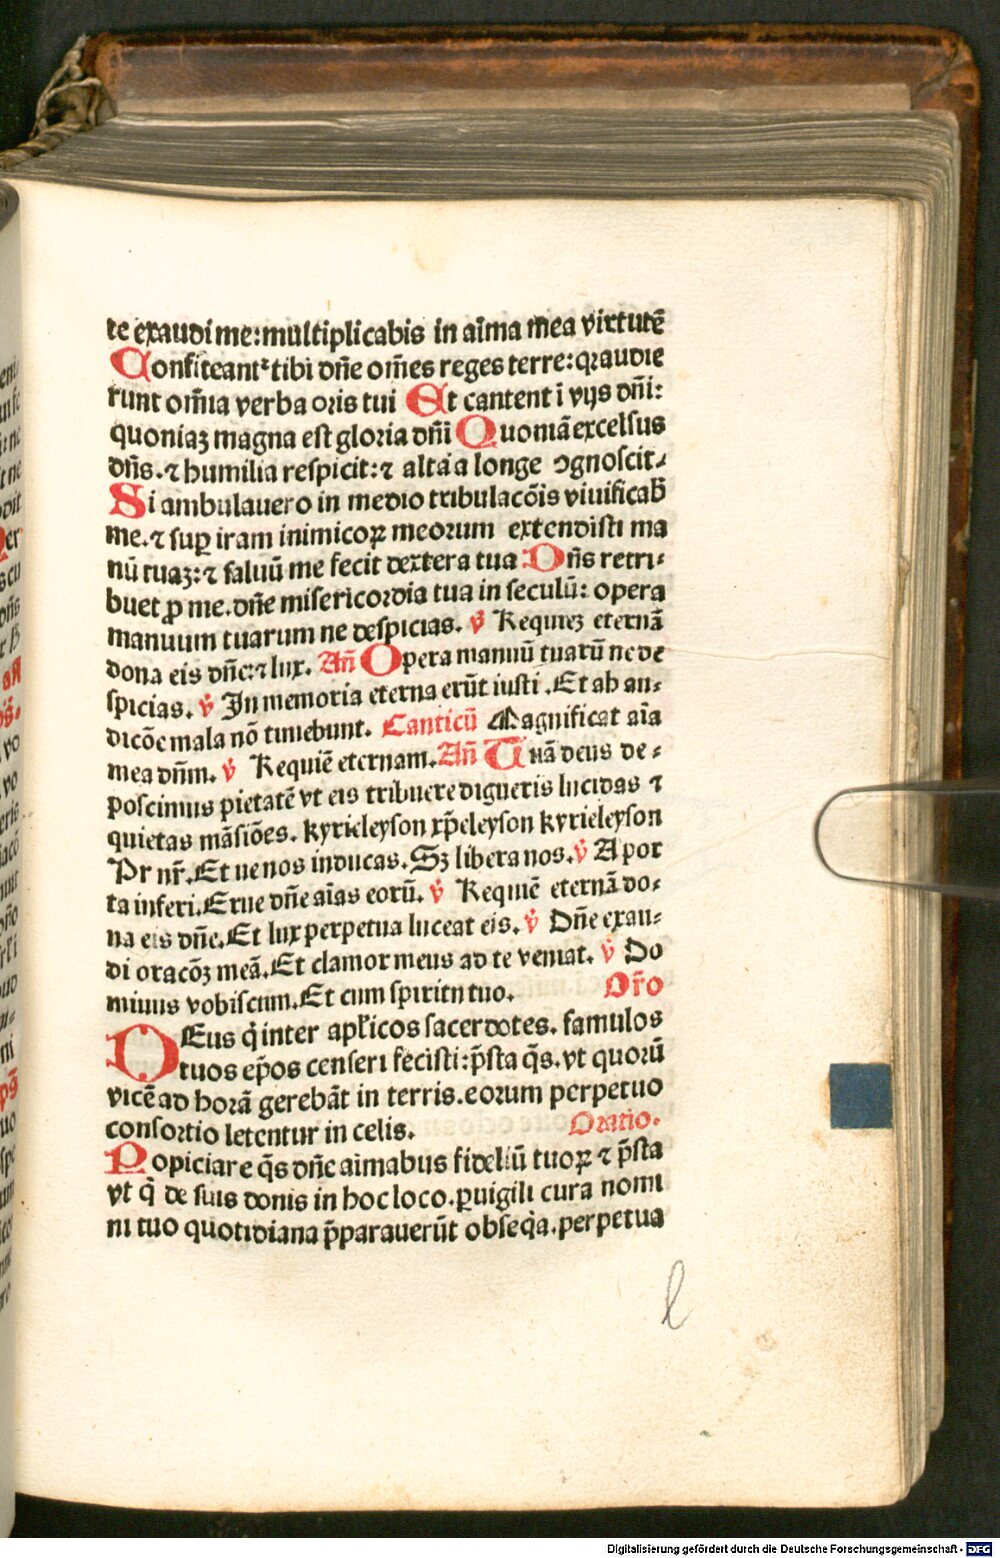 te exaudi me: multiplicabis in aĩma mea virtutẽ
Confiteantᷣ tibi dñe om̃es reges terre: qꝛ audie
runt om̃ia verba oꝛis tui Et cantent ĩ vijs dñi:
quoniaꝫ magna est gloꝛia dñi Quoniã excelsus
dñs. ⁊ humilia respicit: ⁊ alta a longe ꝯgnoscit⸗
Si ambulauero in medio tribulacõis viuificab̃
me. ⁊ sup̱ iram inimicoꝝ meoꝛum extendisti ma
nũ tuaꝫ: ⁊ saluũ me fecit dextera tua Dñs retri⸗
buet ꝓ me. dñe misericoꝛdia tua in seculũ: opera
manuum tuarum ne despicias. ℣ Requieꝫ eternã
dona eis dñe: ⁊ lux. Añ Opera manuũ tuarũ ne de
spicias. ℣ In memoria eterna erũt iusti. Et ab au⸗
dicõe mala nõ timebunt. Canticũ Magnificat aĩa
mea dñm. ℣ Requiẽ eternam. Añ Tuã deus de⸗
poscimus pietatẽ vt eis tribuere digneris lucidas ⁊
quietas mãsiões. kyrieleyson xp̃eleyson kyrieleyson
Pr nr̃. Et ne nos inducas. Sꝫ libera nos. ℣ A por
ta inferi. Erue dñe aĩas eorũ. ℣ Requiẽ eternã do⸗
na eis dñe. Et lux perpetua luceat eis. ℣ Dñe exau⸗
di oracõꝫ meã. Et clamor meus ad te veniat. ℣ Do
minus vobiscum. Et cum spiritu tuo. Or̃o
DEus q̃ inter apl̃icos sacerdotes. famulos
tuos ep̃os censeri fecisti: p̃sta q̃s. vt quorũ
vicẽ ad horã gerebãt in terris. eoꝛum perpetuo
consoꝛtio letentur in celis. Oratio.
Propiciare q̃s dñe aimabus fideliũ tuoꝝ ⁊ p̃sta
vt q̃ de suis donis in hoc loco. ꝑuigili cura nomi
ni tuo quotidiana p̃parauerũt obseq̃a. perpetua
l
Digitalisierung gefördert durch die Deutsche Forschungsgemeinschaft - DFG